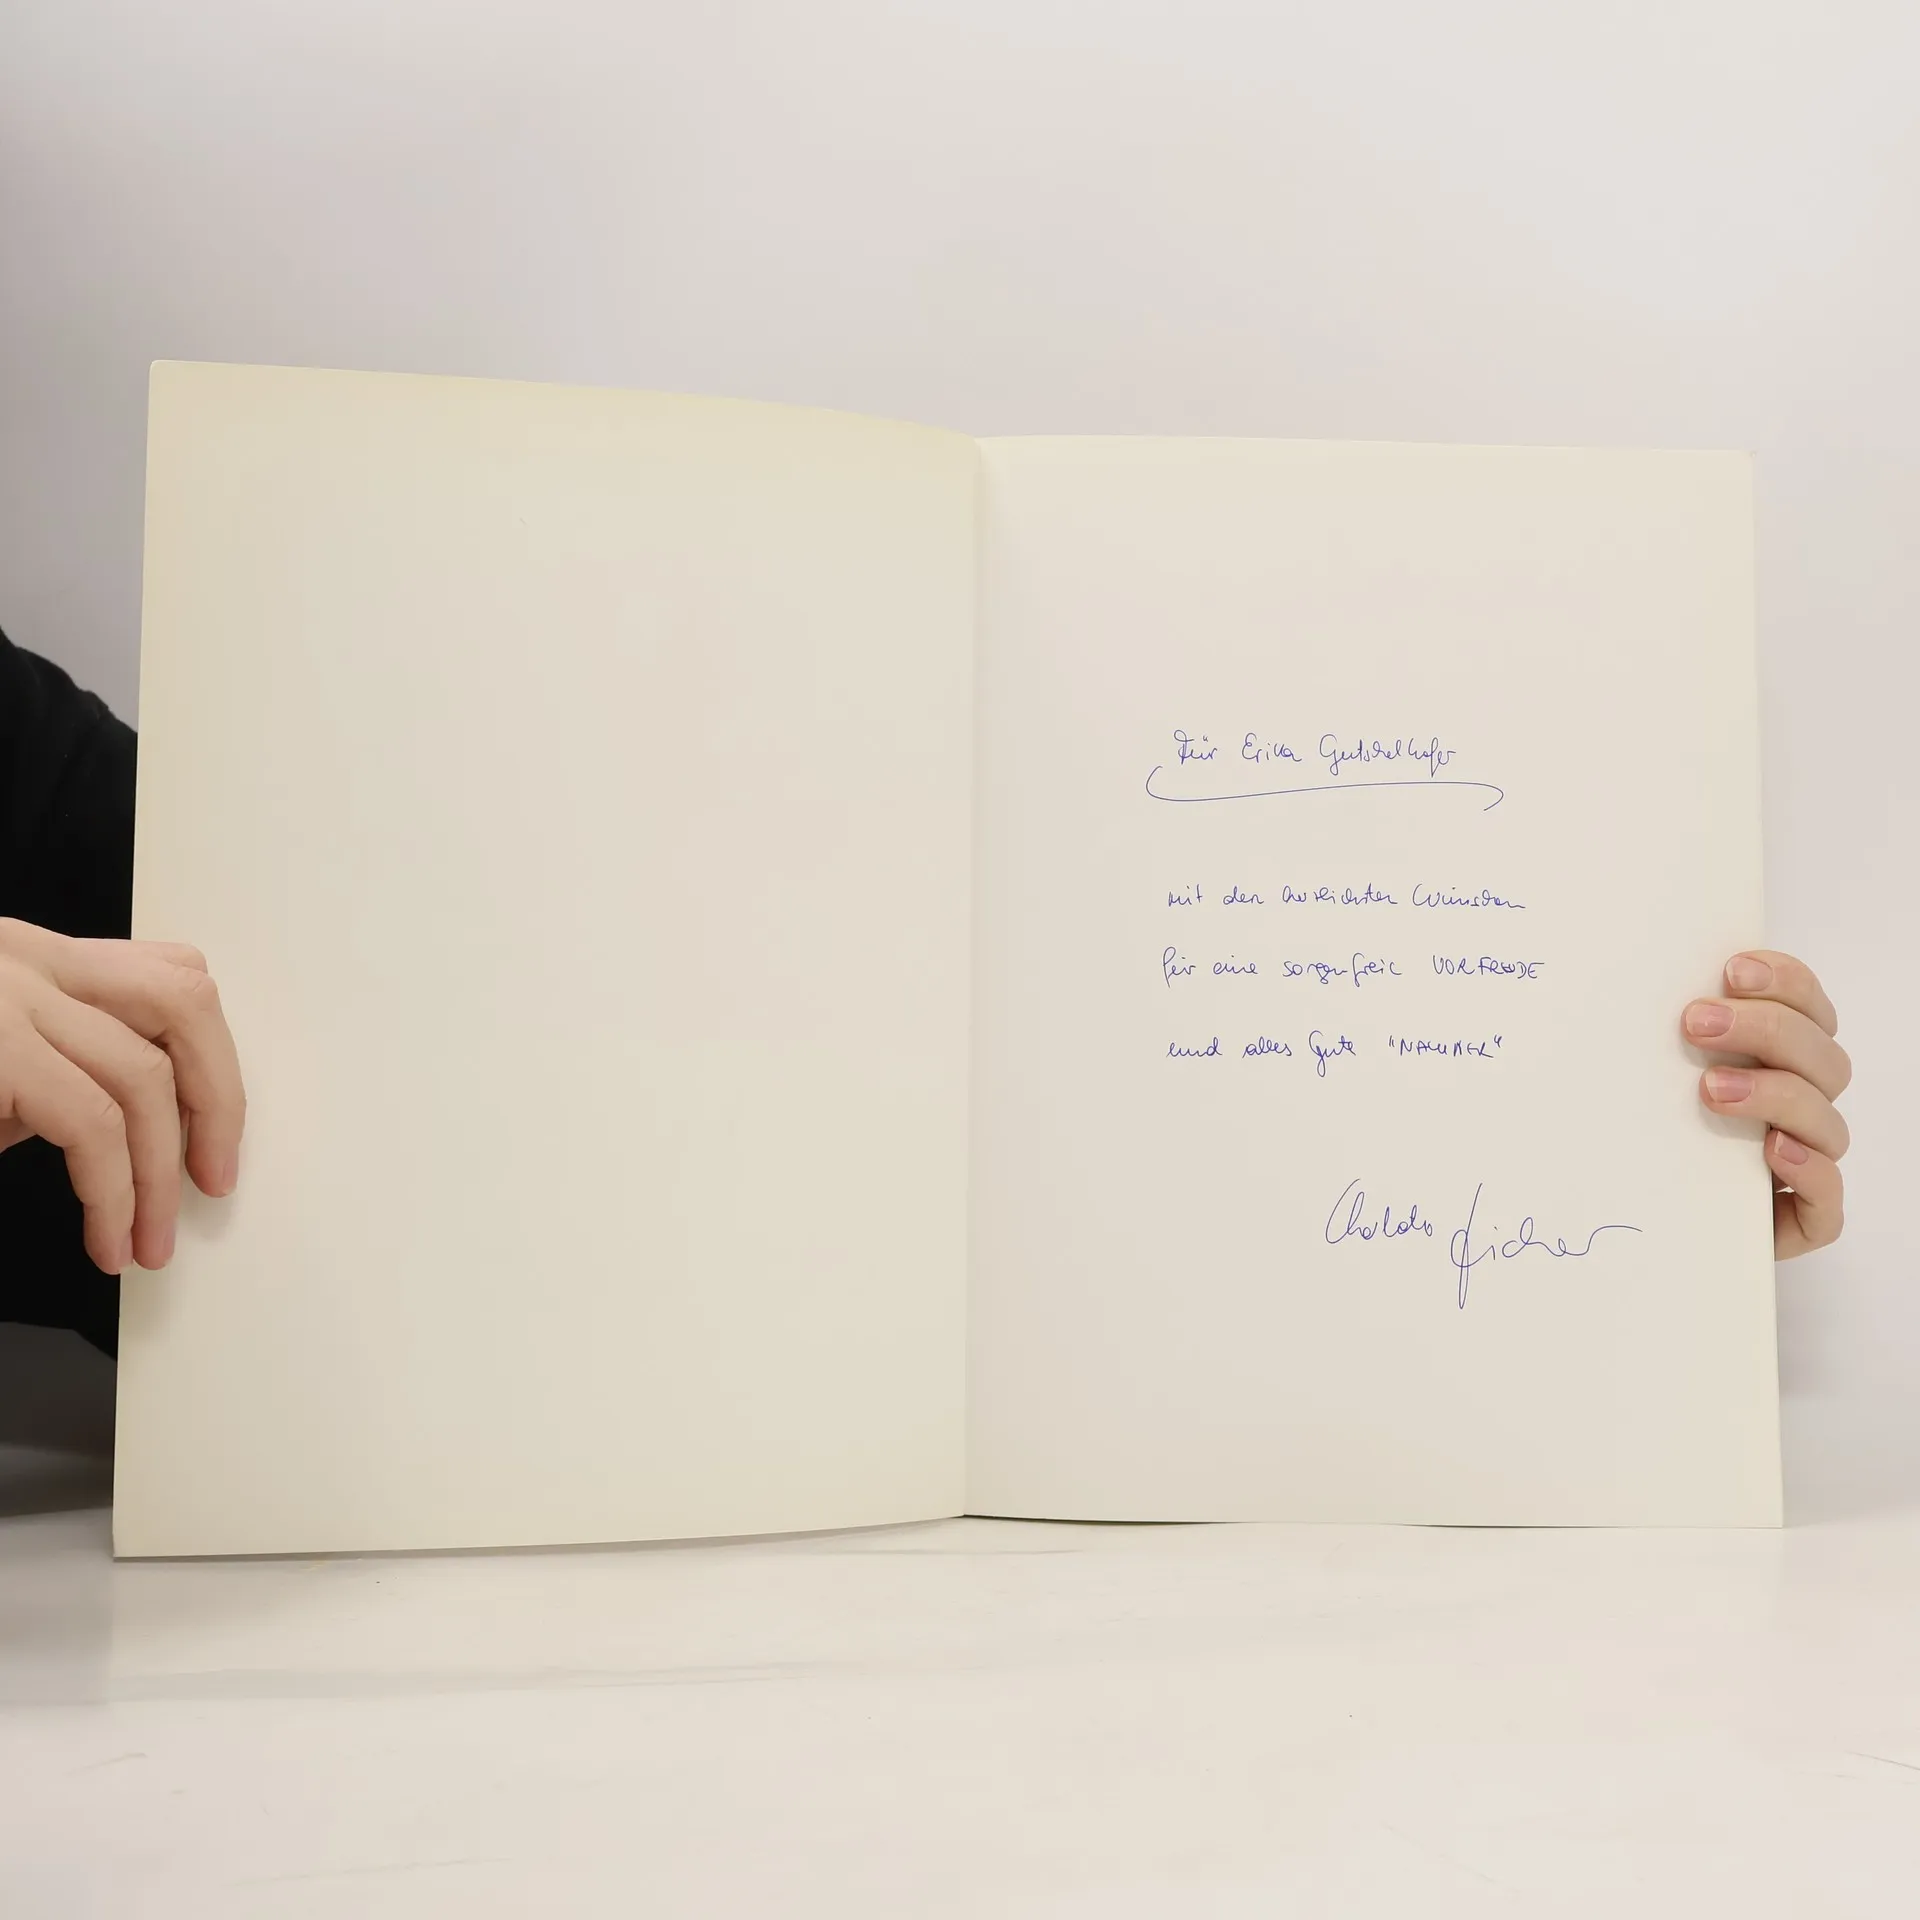 Für Erika Gutschelhofer
mit den herzlichsten Wünschen
für eine sorgenfreie VORFREUDE
und alles Gute "NACHHER"